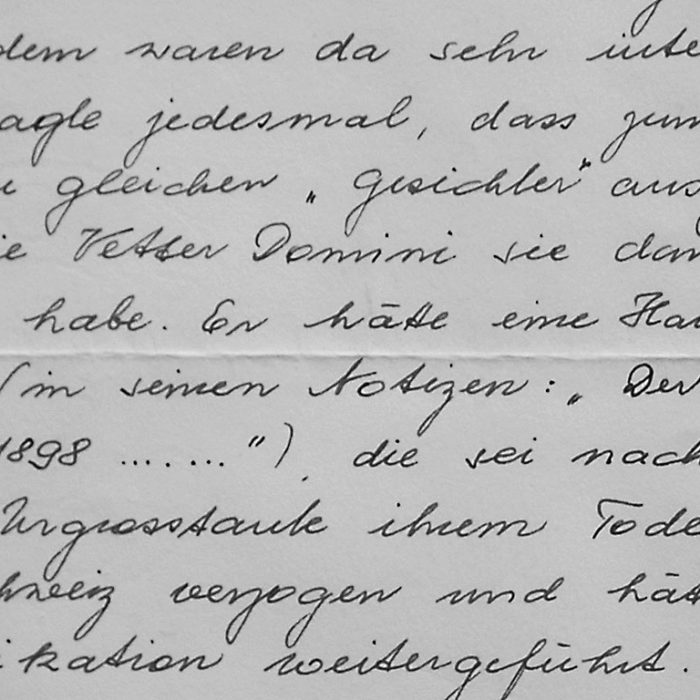 dem waren da sehr inte
agle jedesmal, dass zum
gleichen „Gesichler" aus
ie Vetter Domini sie dan
habe. Er häte eine Han
(in seinen Notizen: „Der
1898 ……") die sei nach
Urgrosstante ihrem Tode
hweiz verzogen und hät
ikation weitergeführt.